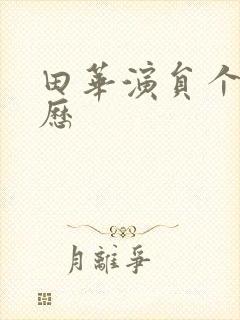 田華演員个
歷
月離爭